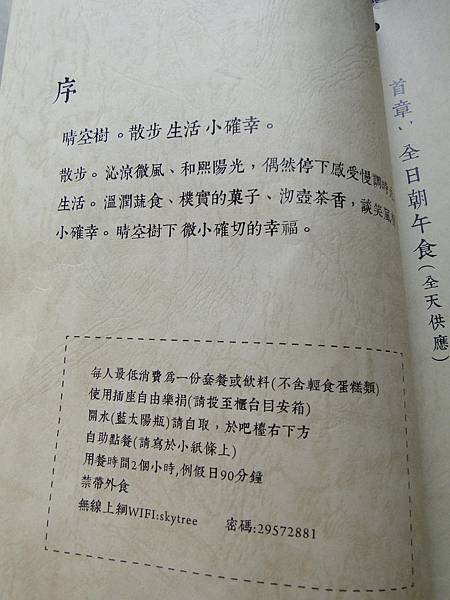 序
晴空樹。散步 生活 小確幸。
散步。沁涼微風、和熙陽光，偶然停下感受慢調時
生活。溫潤蔬食、樸實的菓子、沏壺茶香，談笑風
小確幸。晴空樹下 微小確切的幸福。
每人最低消費為一份套餐或飲料(不含輕食蛋糕類)
使用插座自由樂捐(請投至櫃台目安箱)
開水(藍太陽瓶)請自取，於吧檯右下方
自助點餐(請寫於小紙條上)
用餐時間2個小時,例假日90分鐘
禁帶外食
無線上網WIFI:skytree 密碼:29572881
首章、全日朝午食(全天供應)